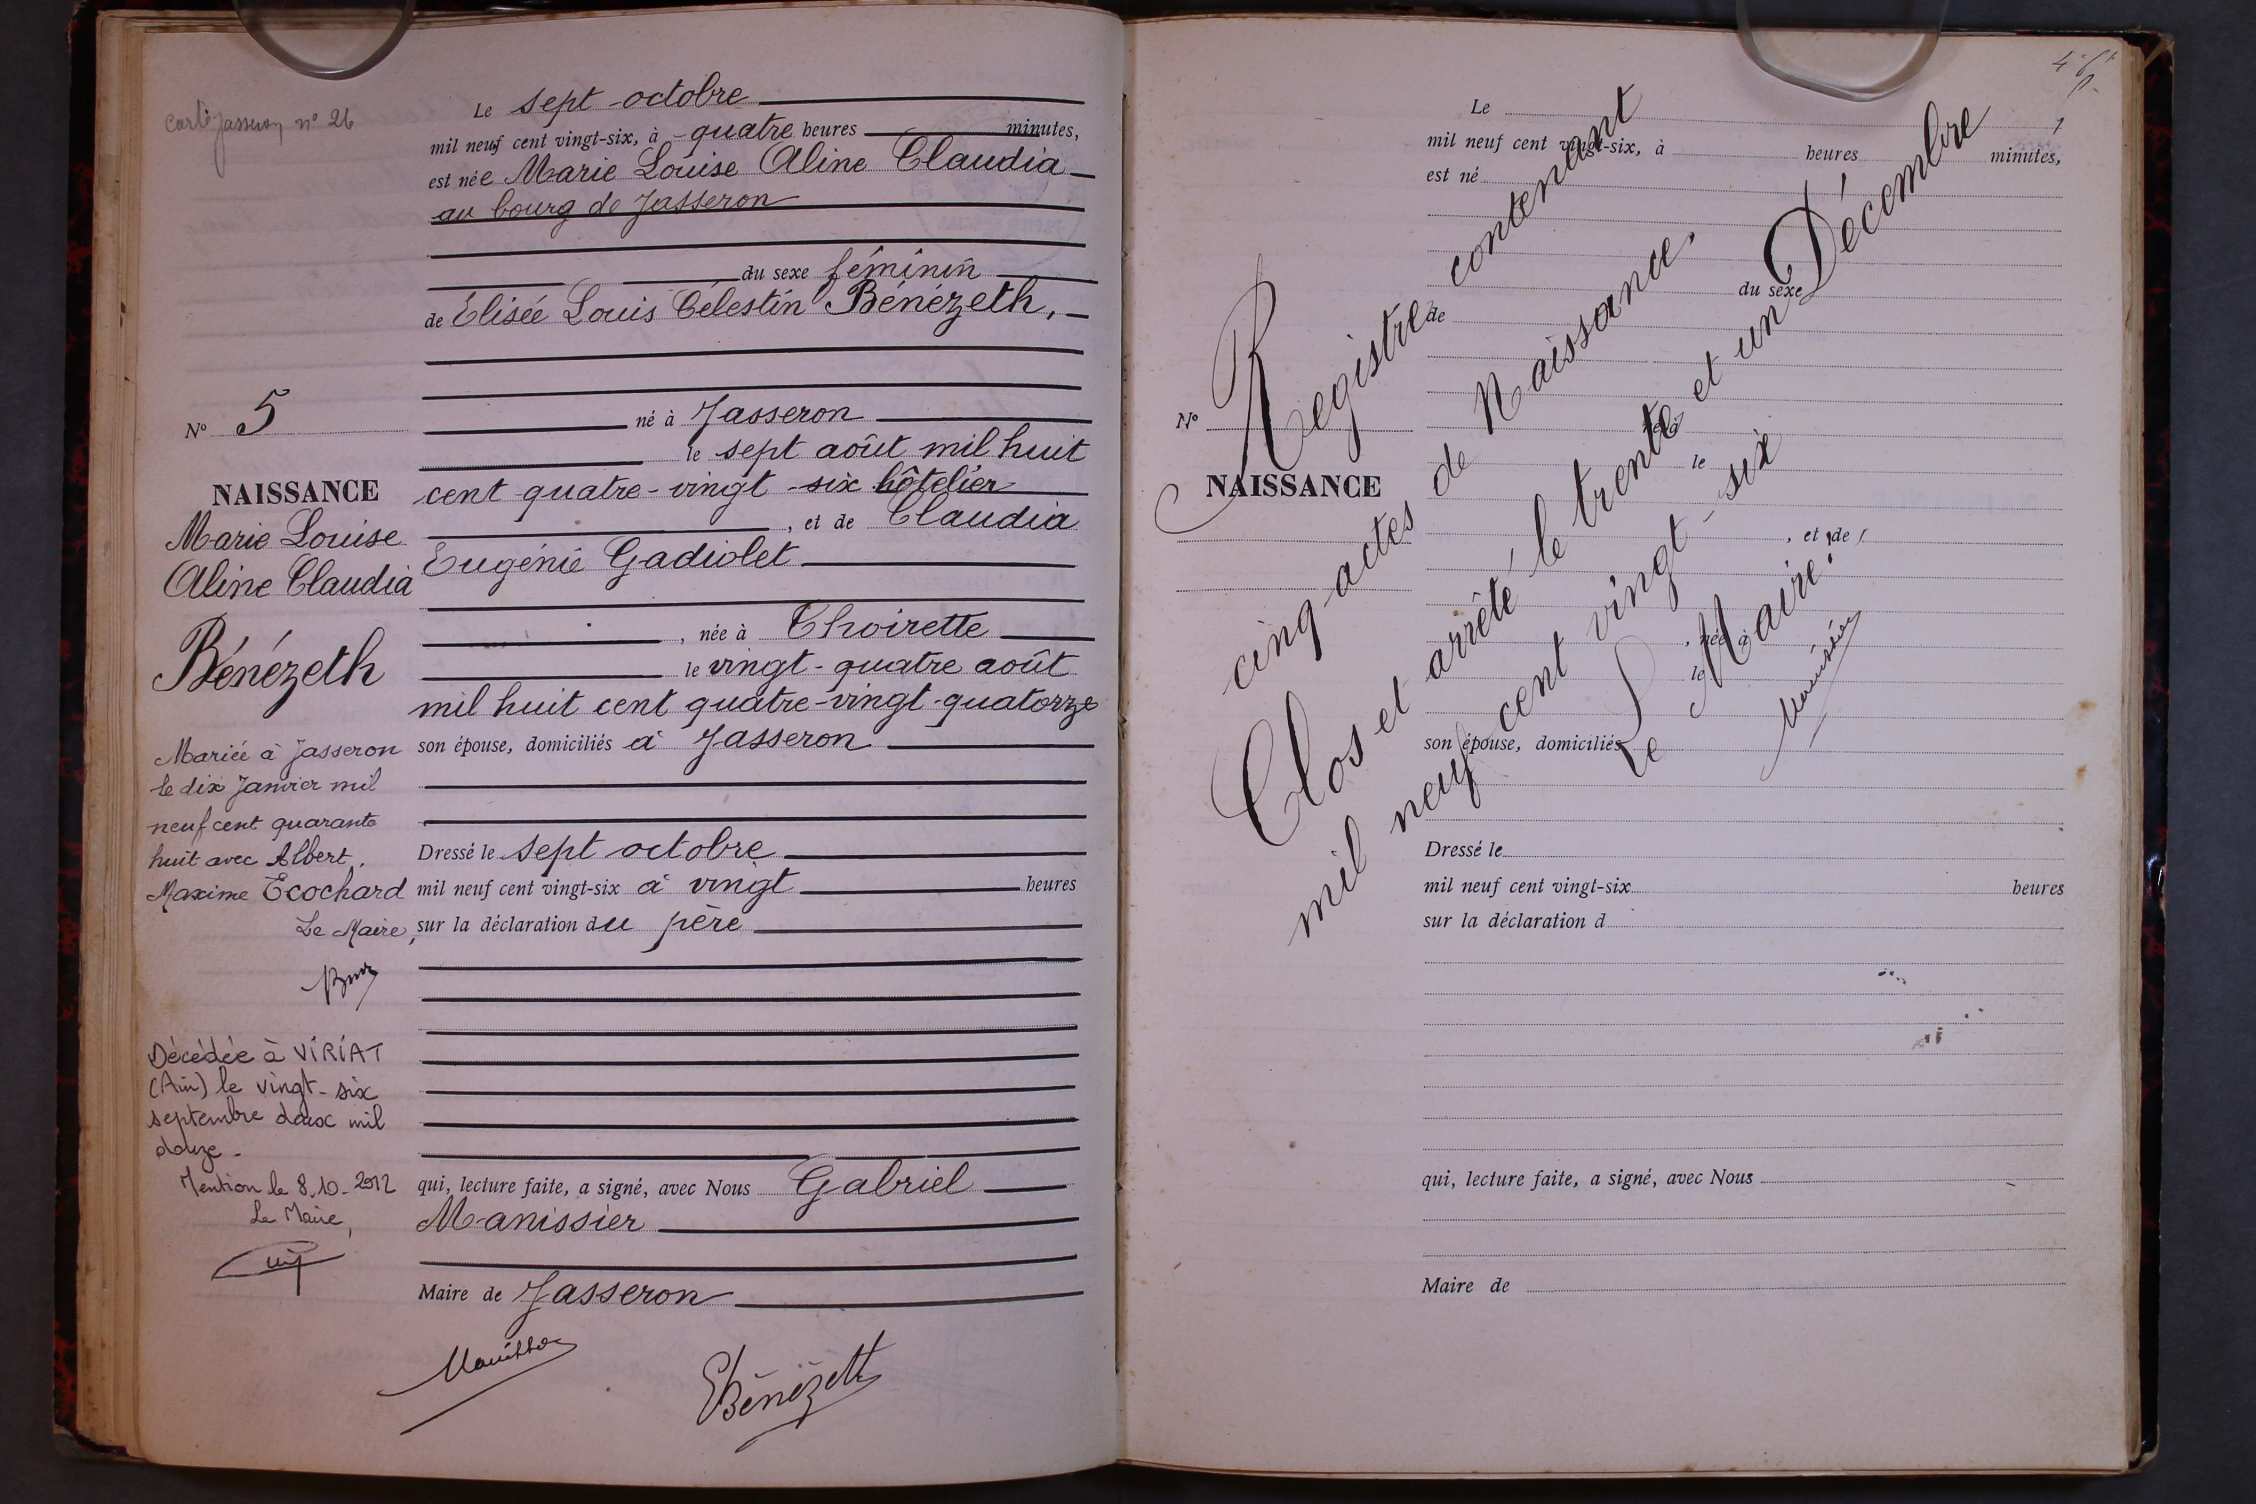 Jasseron n° 26
N° 5
NAISSANCE
Marie Louise
Aline Claudia
Bénézeth
Mariée à Jasseron
le dix Janvier mil
neuf cent quarante
huit avec Albert
Maxime Ecochard
Le Maire,
Décédée à VIRIAT
(Ain) le vingt-six
septembre deux mil
douze -
Mention le 8.10.2012
Le Maire,
Le sept octobre
mil neuf cent vingt-six, à quatre heures minutes,
est née Marie Louise Aline Claudia
au bourg de Jasseron
du sexe féminin
de Elisée Louis Célestin Bénézeth,
né à Jasseron
le sept août mil huit
cent quatre-vingt-six hôtelier
, et de Claudia
Eugénie Gadiolet
, née à Thoirette
le vingt-quatre août
mil huit cent quatre-vingt-quatorze
son épouse, domiciliés à Jasseron
Dressé le sept octobre
mil neuf cent vingt-six à vingt heures
sur la déclaration du père
qui, lecture faite, a signé, avec Nous Gabriel
Manissier
Maire de Jasseron
EBénézeth
Registre contenant
cinq actes de Naissance.
Clos et arrêté le trente et un Décembre
mil neuf cent vingt-six
Le Maire:
Manissier
N°
NAISSANCE
Le
mil neuf cent vingt-six, à heures minutes,
est né
du sexe
de
né à
le
, et de
, née à
le
son épouse, domiciliés
Dressé le
mil neuf cent vingt-six heures
sur la déclaration d
qui, lecture faite, a signé, avec Nous
Maire de